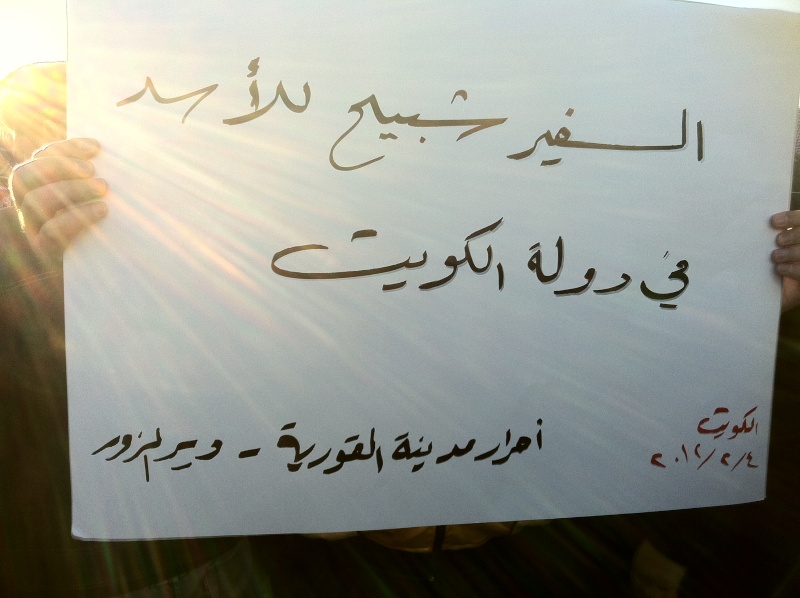 السفير شبيح للأسد
في دولة الكويت
أحرار مدينة القورية - ديرالزور
الكويت
٢٠١٢/٢/٤